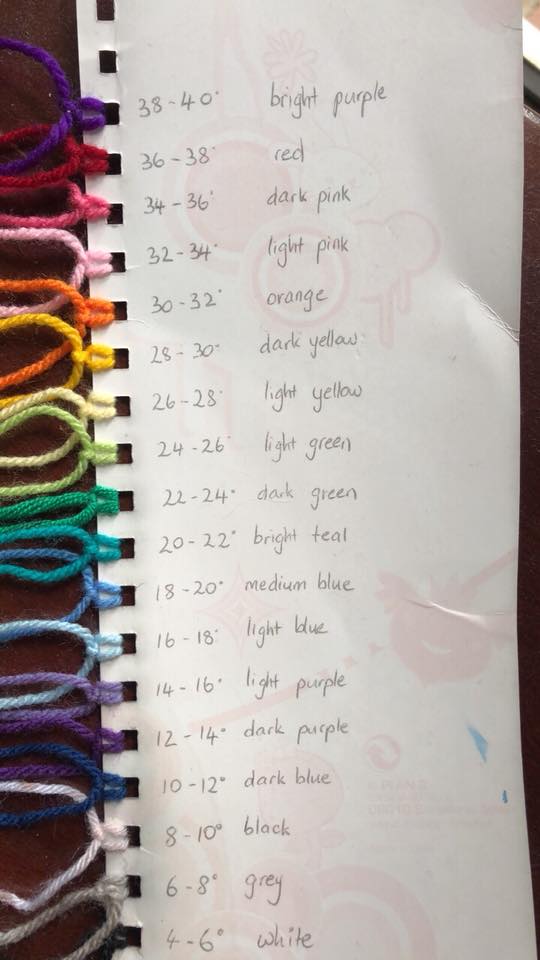 38-40° bright purple
36-38° red
34-36° dark pink
32-34° light pink
30-32° orange
28-30° dark yellow
26-28° light yellow
24-26° light green
22-24° dark green
20-22° bright teal
18-20° medium blue
16-18° light blue
14-16° light purple
12-14° dark purple
10-12° dark blue
8-10° black
6-8° grey
4-6° white